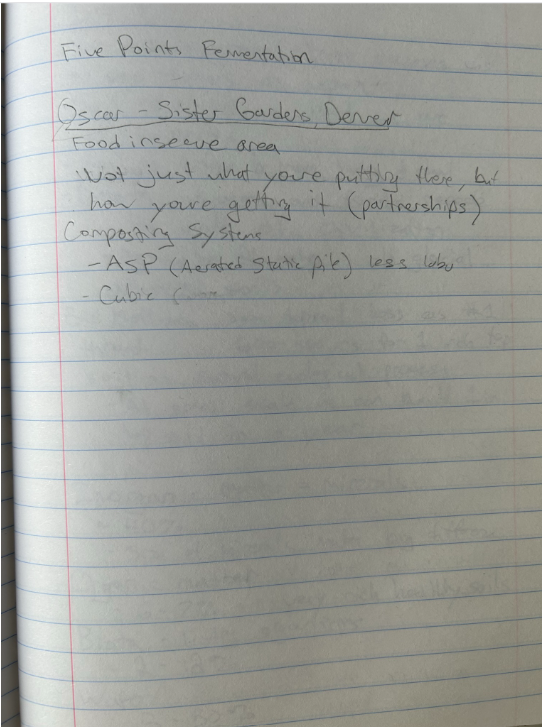 Five Points Fermentation
Oscar - Sister Gardens, Denver
Food insecure area
Not just what youre putting there, but
how youre getting it (partnerships)
Composting Systems
- ASP (Aerated Static pile) less labor
- Cubic